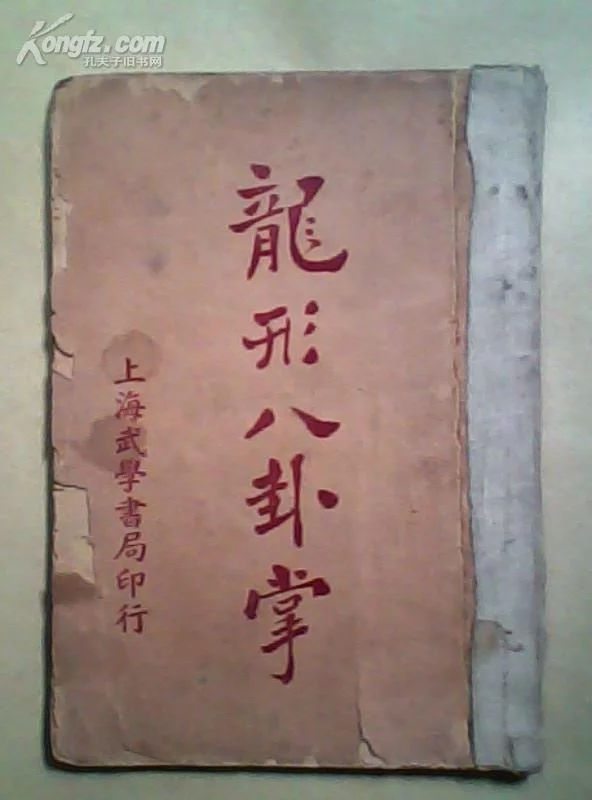 Kongfz.com
孔夫子旧书网
龍形八卦掌
上海武學書局印行